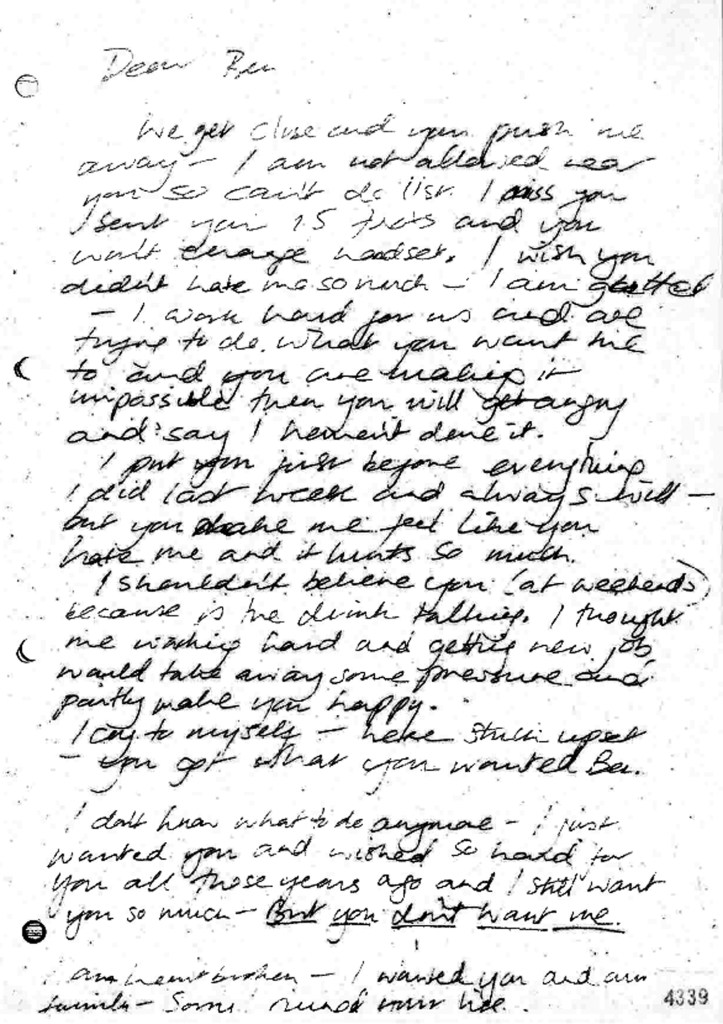 Dear Ben
We get close and you push me
away - I am not allowed near
you so can't do list. I miss you
I sent you 15 texts and you
won't change headset. I wish you
didn't hate me so much - I am gutted
- I work hard for us and are
trying to do what you want me
to and you are making it
impossible then you will get angry
and say I haven't done it.
I put you first before everything
I did last week and always will -
but you make me feel like you
hate me and it hurts so much.
I shouldn't believe you (at weekends)
because is the drink talking. I thought
me working hard and getting new job
would take away some pressure and
partly make you happy.
I cry to myself - here stuck upset
- you got what you wanted Ben.
I don't know what to do anymore - I just
wanted you and wished so hard for
you all those years ago and I still want
you so much - But you don't want me.
I am heartbroken - I wanted you and our
family - Sorry ruined your life.
4339